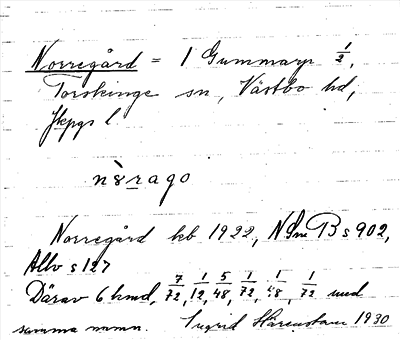 Norregård = 1 Gummarp 1/2,
Torskinge sn, Västbo hd,
Jkpgs l
nè8rago
Norregård kb 1922, NSm B s 902,
Allb s 127
Därav 6 hmd, 7/72, 1/12, 5/48, 1/72, 1/48, 1/72 med
samma namn. Ingrid Harenstam 1930